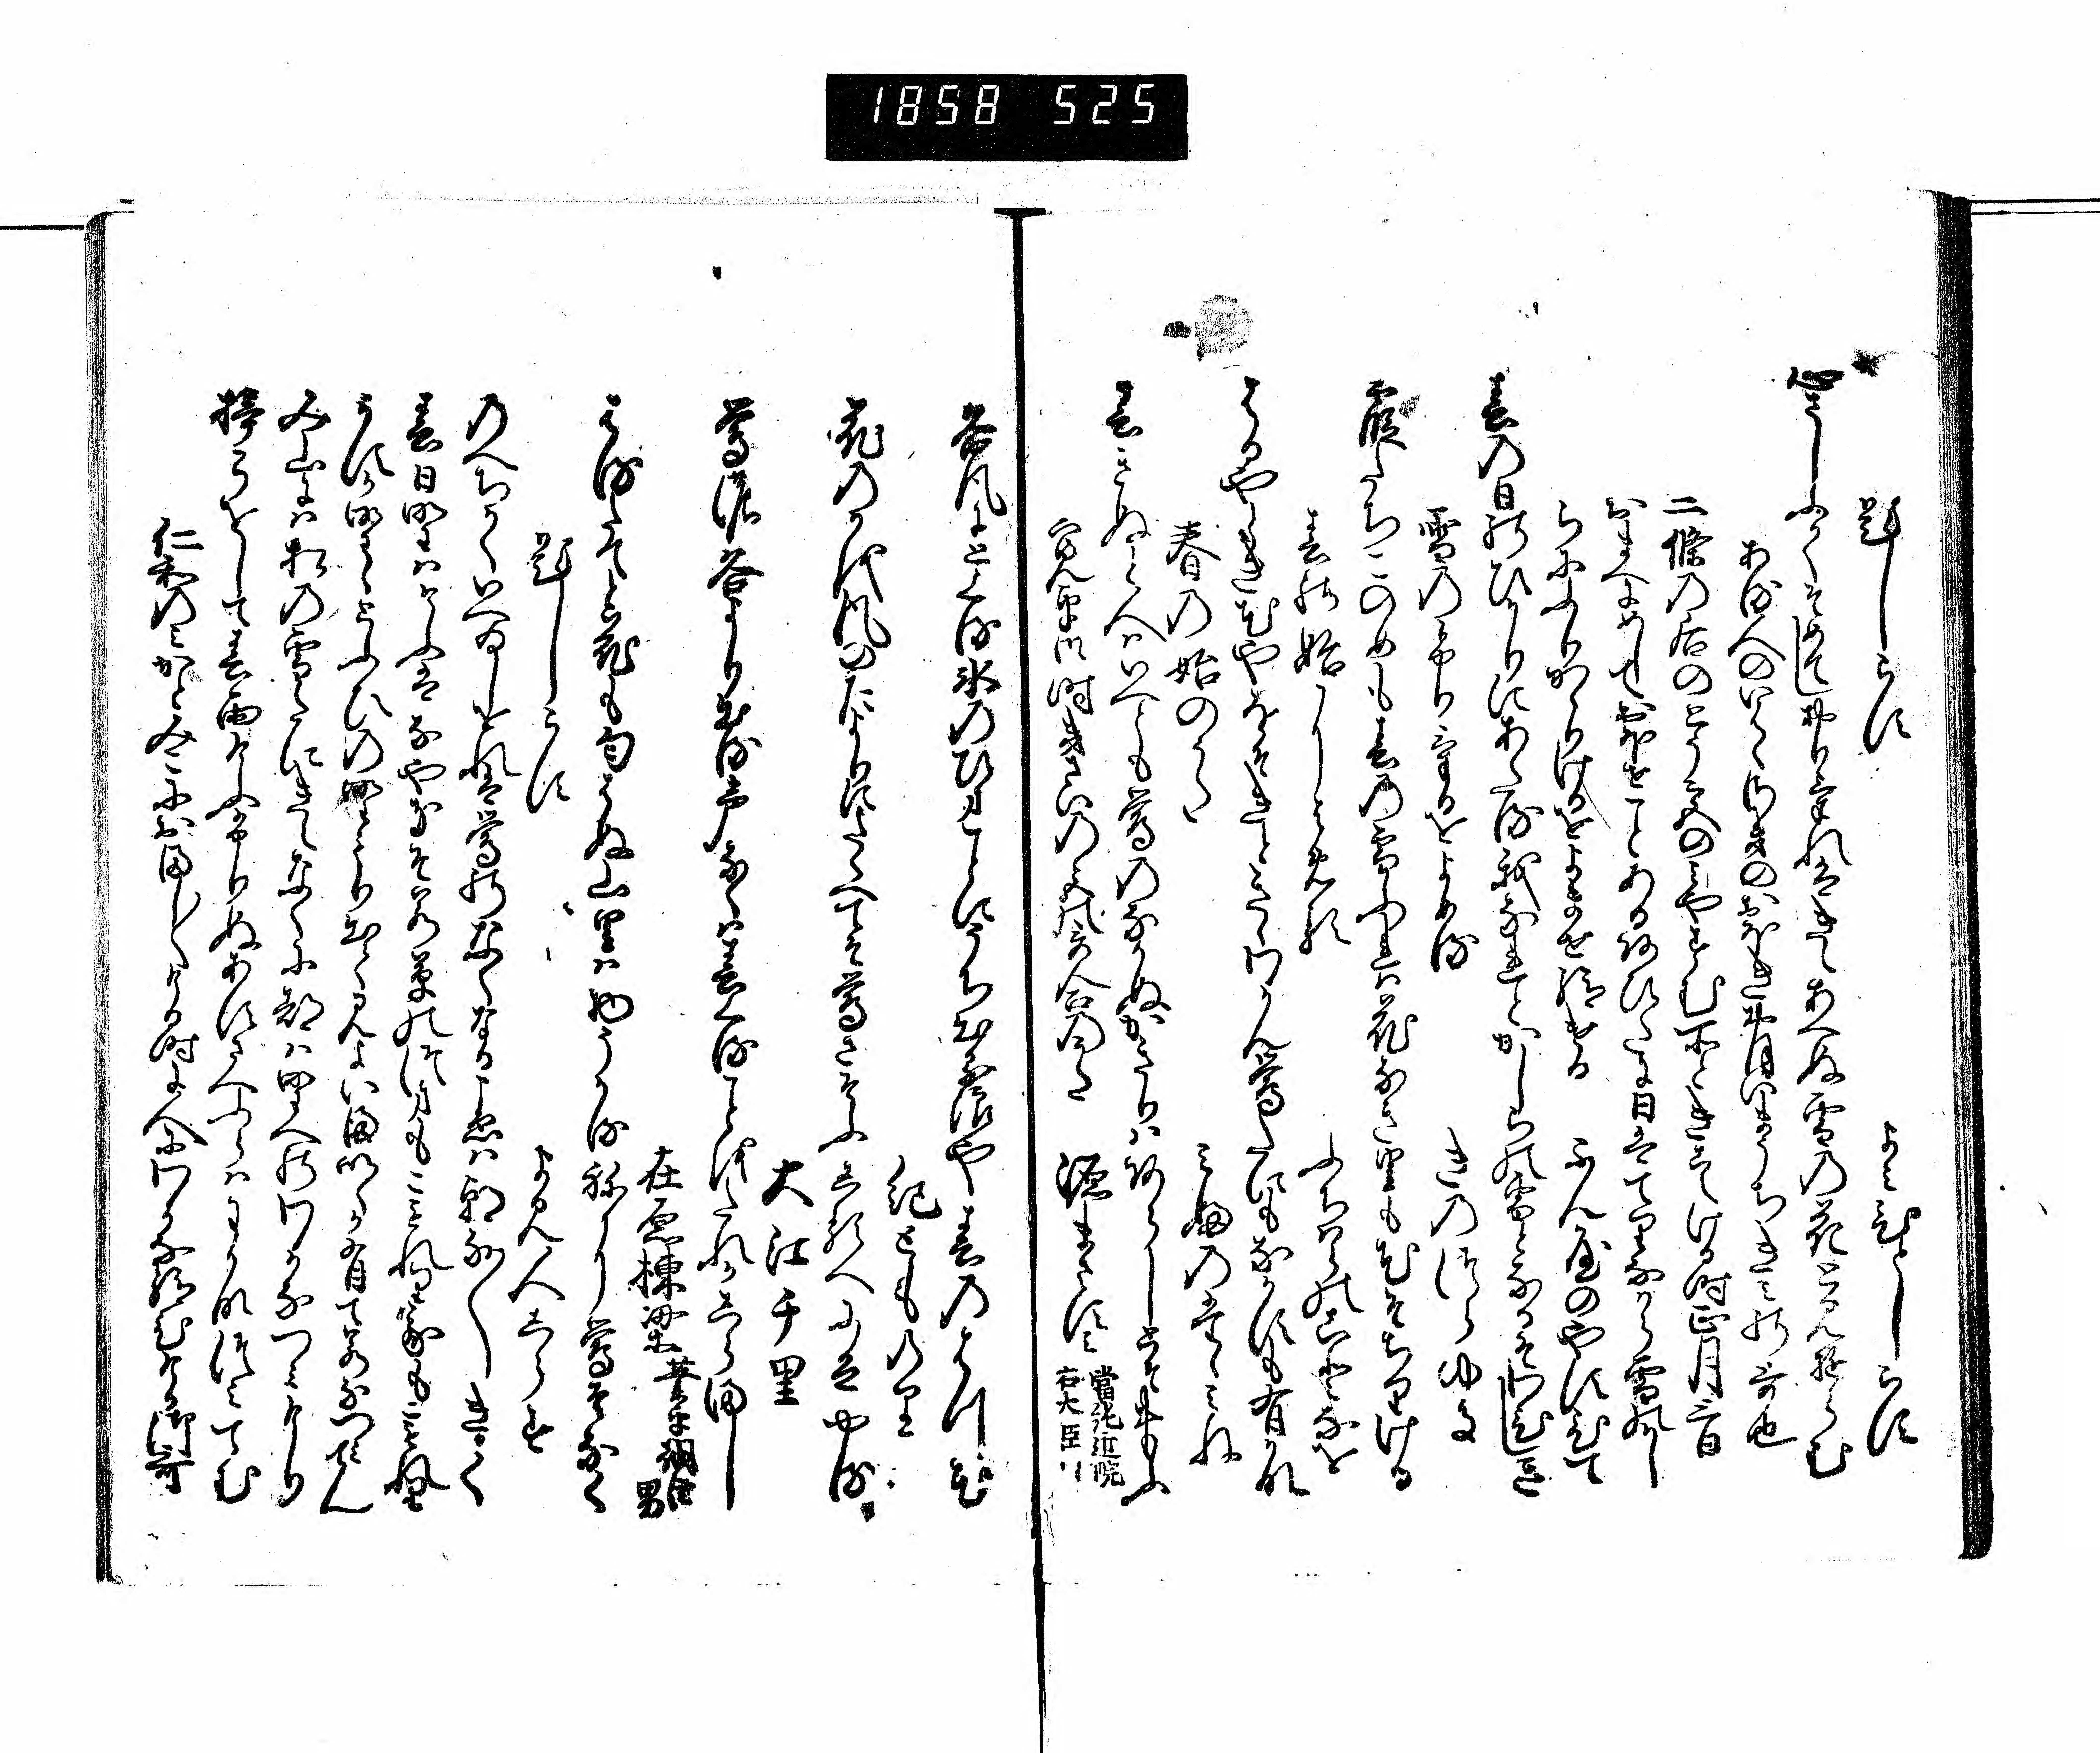 1858 525
題しらす
よみ人しらす
心さしふかくそめてしおりけれはきえあへぬ雪の花と見ゆらむ
ある人のいはくさきのおほきおほいまうちきみの哥也
二條の后のとう宮のみやす所ときこえける時正月三日
おまへにめしておほせことあるあひたに日はてりなから雪かし
らにふりかゝりけるをよませ給ける
ふん屋のやすひて
春の日のひかりにあたる我なれとかしらの雪となるそわひしき
雪のふりけるをよめる
きのつらゆき
霞たちこのめも春の雪ふれは花なき里も花そちりける
春の始によめる
ふちはらのことなを
はるやとき花やをそきときゝわかん鶯たにもなかすも有かな
春の始のうた
みふのたゝみね
春きぬと人はいへとも鶯のなかぬかきりはあらしとそおもふ
寛平御時きさいの宮哥合のうた
源まさすみ
當純近院右大臣
谷風にとくる氷のひまことにうち出る浪や春のはつ花
紀とものり
花のかを風のたよりにたくへてそ鶯さそふしるへにはやる
大江千里
鶯の谷よりいつる声なくは春くることをたれかしらまし
在原棟梁
業平朝臣男
はるたてと花も匂はぬ山里は物うかるねに鶯そなく
題しらす
よみ人しらす
のへちかくいへゐしをれは鶯のなくなるこゑは朝な〱きく
春日野はけふはなやきそ若草のつまもこもれり我もこもれり
かすか野のとふひの野もり出て見よいまいくか有て若なつみてん
み山には松の雪たにきえなくに都は野へのわかなつみけり
梓弓をして春雨けふふりぬあすさへふらはわかなつみてむ
仁和のみかとみこにおまし〱ける時に人にわかな給ひける御哥